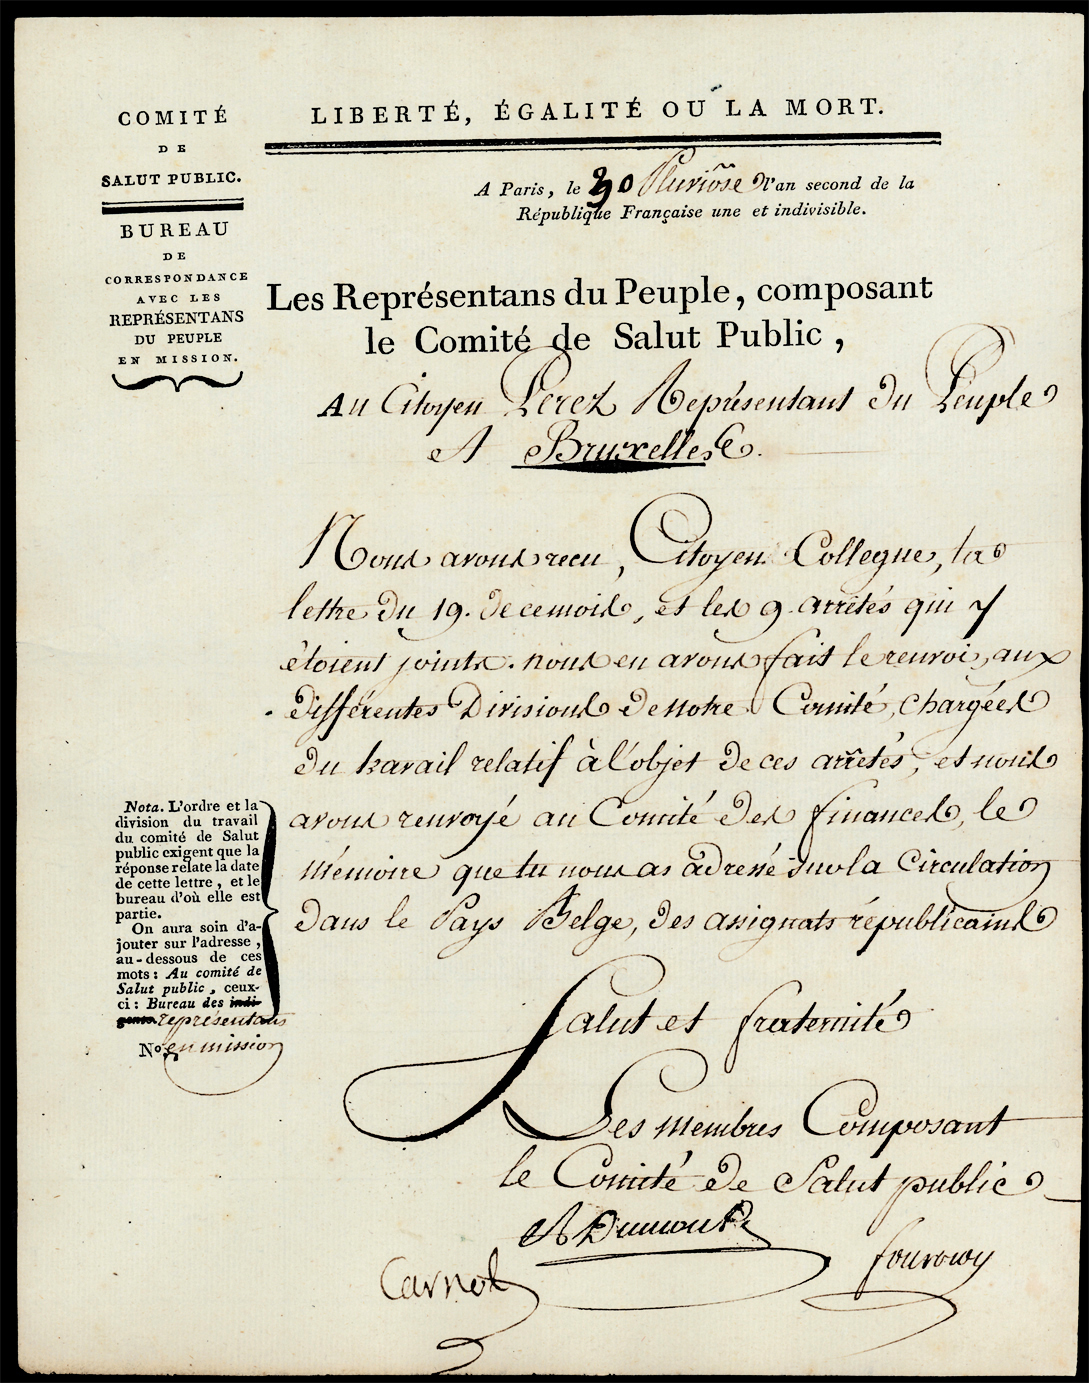 COMITÉ
DE
SALUT PUBLIC.
BUREAU
DE
CORRESPONDANCE
AVEC LES
REPRÉSENTANS
DU PEUPLE
EN MISSION.
LIBERTÉ, ÉGALITÉ OU LA MORT.
A Paris, le Pluviôse l'an second de la
République Française une et indivisible.
Les Représentans du Peuple, composant
le Comité de Salut Public,
Au Citoyen Perez Représentant du Peuple
A Bruxelles.
Nous avons recu, Citoyen Collegue, ta
lettre du 19. de ce mois, et les 9. arrêtés qui y
étoient joints. nous en avons fait le renvoi, aux
différentes Divisions de notre Comité, chargées
du travail relatif à l'objet de ces arrêtés, et nous
avons renvoyé au Comité des finances, le
mémoire que tu nous as adressé sur la Circulation
dans le Pays Belge, des assignats républicains
Salut et fraternité
Les membres Composant
le Comité de Salut public
A Dumont
Carnot
fourcroy
Nota. L'ordre et la
division du travail
du comité de Salut
public exigent que la
réponse relate la date
de cette lettre, et le
bureau d'où elle est
partie.
On aura soin d'a-
jouter sur l'adresse,
au-dessous de ces
mots : Au comité de
Salut public, ceux-
ci : Bureau des indi-
gens. représentans
N° en mission